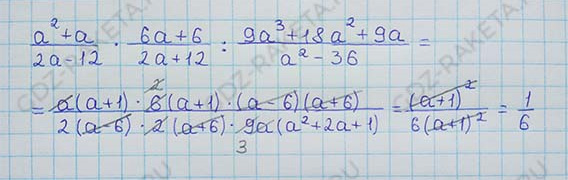 (a² + a)/(2a - 12) · (6a + 6)/(2a + 12) : (9a³ + 18a² + 9a)/(a² - 36) =
= (a(a+1) · 6(a+1) · (a-6)(a+6))/(2(a-6) · 2(a+6) · 9a(a² + 2a + 1)) = (a+1)²/6(a+1)² = 1/6
2
3
GDZ-RAKETA.RU